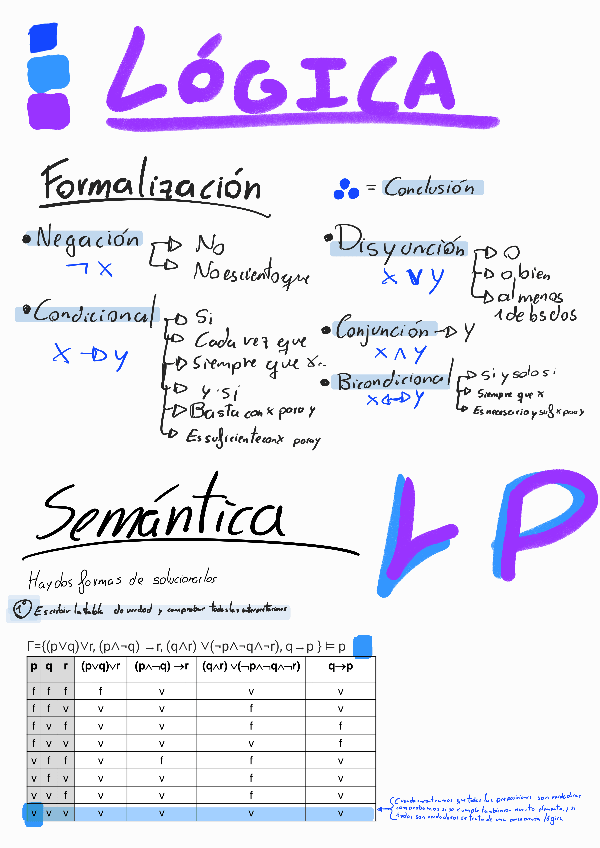 LÓGICA
Formalización
= Conclusión
• Negación
No
No es cierto que
¬ x
• Disyunción
O
o bien
al menos
1 de los dos
x v y
• Condicional
Si
Cada vez que
Siempre que x..
y si
Basta con x para y
Es suficiente con x para y
x → y
• Conjunción → y
x ∧ y
• Bicondicional
Si y solo si
Siempre que x
Es necesario y suf x para y
x ↔ y
Semántica
LP
Hay dos formas de solucionarlos
1º Escribir la tabla de verdad y comprobar todas las interpretaciones
Γ={(p∨q)∨r, (p∧¬q) → r, (q∧r) ∨(¬p∧¬q∧¬r), q→p } ⊨ p
p q r (p∨q)∨r (p∧¬q) →r (q∧r) ∨(¬p∧¬q∧¬r) q→p
f f f f v v v
f f v v v f v
f v f v v f f
f v v v v v f
v f f v f f v
v f v v v f v
v v f v v f v
v v v v v v v
Cuando encontramos que todas las proposiciones son verdaderas
comprobamos si se cumple también en nuestro elemento, y si
ambos son verdaderos se trata de una consecuencia lógica